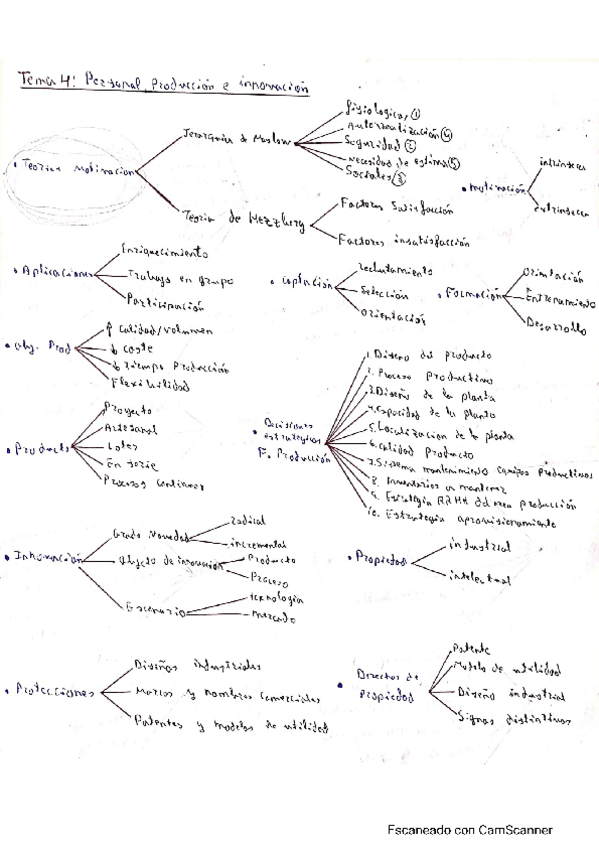 Tema 4: Personal, Producción e innovación
• Teorías Motivacion
Jerarquía de Maslow
fisiologicas ①
Autorrealización ④
Seguridad ②
Necesidad de estima ⑤
Sociales ③
Teoria de Hezzberg
Factores Satisfacción
Factores insatisfacción
• motivación
intrinseca
extrinseca
• Aplicaciones
Enriquecimiento
Trabajo en grupo
Participación
• captación
reclutamiento
Selección
Orientación
• Formación
Orientación
Entrenamiento
Desarrollo
• Obj. Prod
↑ Calidad/volumen
↓ coste
↓ tiempo Producción
Flexibilidad
• Producto
Proyecto
Artesanal
Lotes
En serie
Procesos continuos
• Decisiones
estrategicas
F. Producción
1. Diseño del producto
2. Proceso Productivo
3. Diseño de la planta
4. Capacidad de la planta
5. Localización de la planta
6. Calidad Producto
7. Sistema mantenimiento equipos Productivos
8. Inventarios a mantener
9. Estrategia RRHH del area producción
10. Estrategia aprovisionamiento
• Innovación
Grado Novedad
radical
incremental
Objeto de innovación
Producto
Proceso
Escenario
tecnología
mercado
• Propiedad
industrial
intelectual
• Protecciones
Diseños industriales
Marcas y nombres comerciales
Patentes y modelos de utilidad
• Derechos de
Propiedad
Patente
Modelo de utilidad
Diseño industrial
Signos distintivos
Escaneado con CamScanner